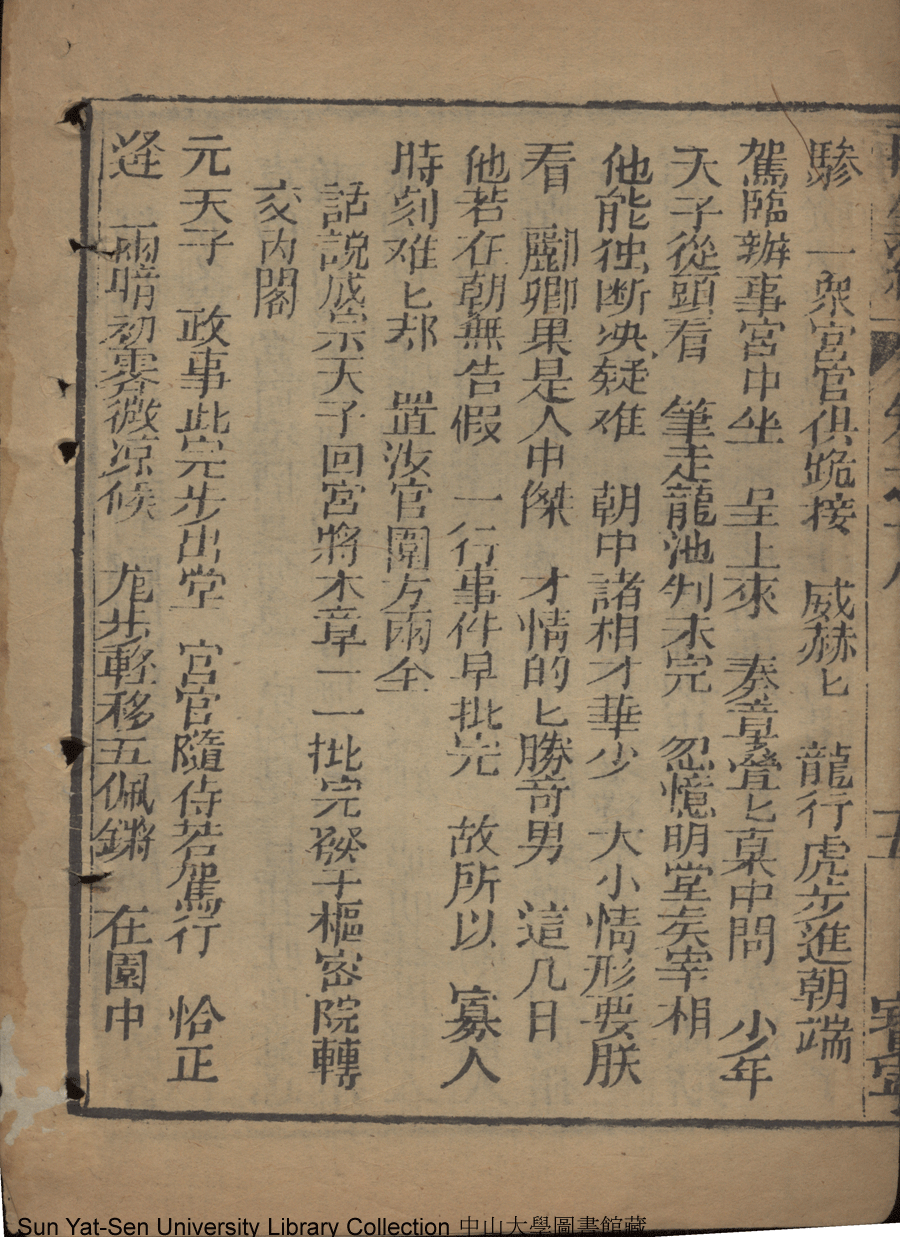 驂　一衆宮官俱跪接　威赫匕　龍行虎步進朝端
駕臨辦事宮中坐　呈上來　奏章叠匕棄中間　少年
天子從頭看　筆走龍池判未完　忽憶明堂矣宰相
他能独断决疑难　朝中諸相才華少　大小情形要朕
看　酈卿果是人中傑　才情的匕勝奇男　這几日
他若在朝無告假　一行事件早批完　故所以　寡人
時刻难匕　置汝官圍方兩全
話説成宗天子回宮將本章一一批完發于樞密院轉
交內閣
元天子　政事此完步出堂　宮官隨侍若駕行　恰正
逄　雨晴初霽微凉候　龙步輕移玉佩鏘　在園中
五
Sun Yat-Sen University Library Collection 中山大學圖書館藏